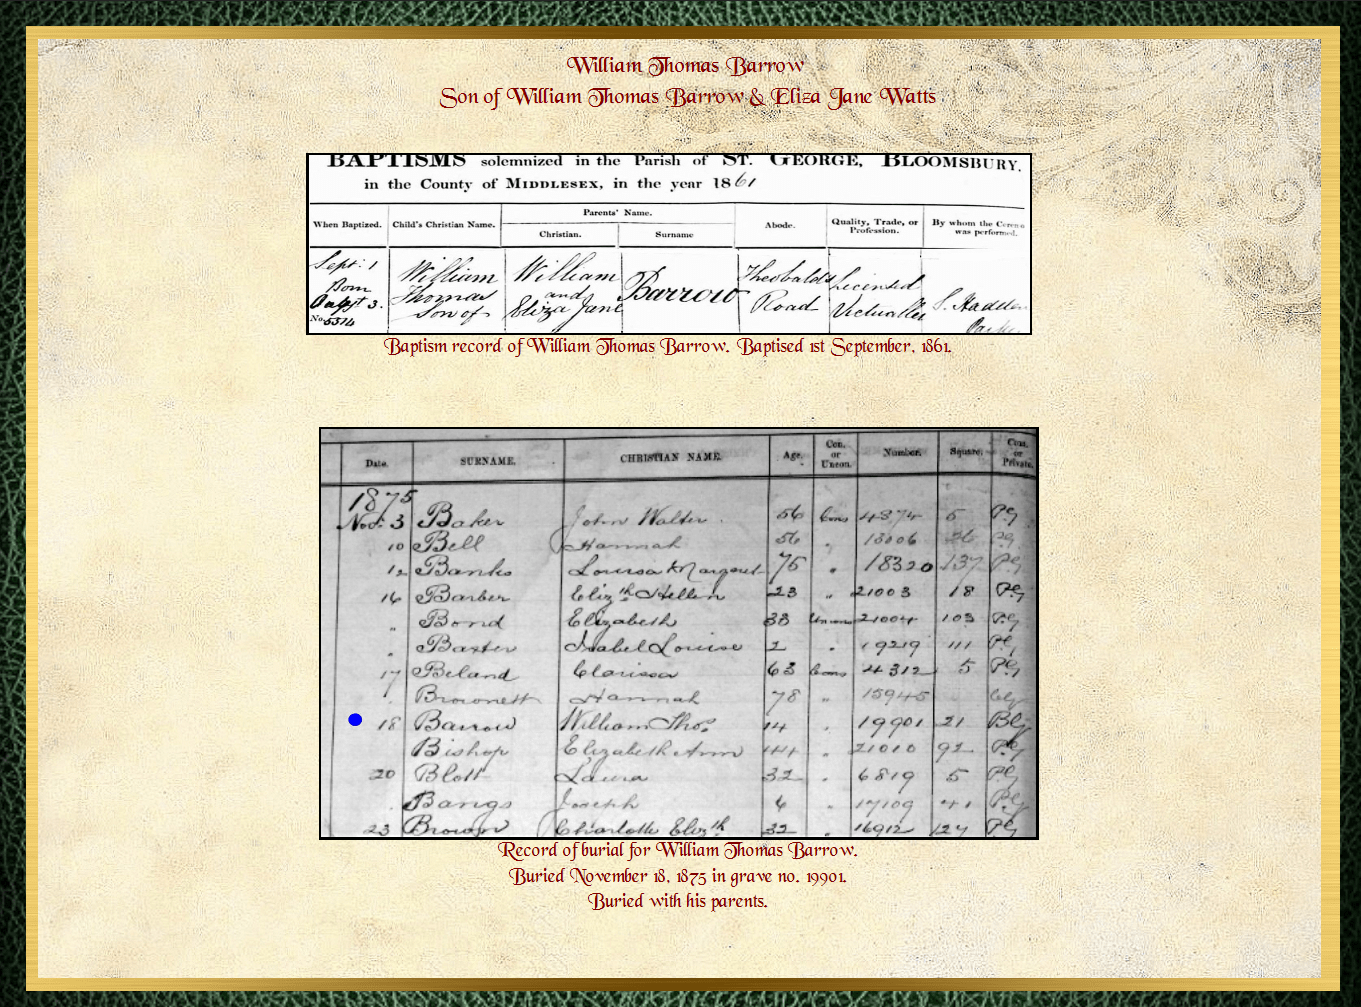 William Thomas Barrow
Son of William Thomas Barrow & Eliza Jane Watts
BAPTISMS solemnized in the Parish of ST. GEORGE, BLOOMSBURY,
in the County of MIDDLESEX, in the year 1861
When Baptized. Child's Christian Name. Parents' Name. Abode. Quality, Trade, or Profession. By whom the Cerem was performed.
Christian. Surname
Sept: 1 William William Barrow Theobalds Licensed
Born Thomas and Road Victualler S.
3. Son of Eliza Jane
No. 5314
Baptism record of William Thomas Barrow. Baptised 1st September, 1861.
Date. SURNAME. CHRISTIAN NAME. Age. Con. or Uncon. Number. Square. Com. or Private.
1875
Nov. 3 Baker John Walter 56 Cons 4874 5 PG
10 Bell Hannah 56 " 13006 26 PG
12 Banks Louisa Margaret 75 " 18320 137 PG
16 Barber Elizth Hellen 23 " 21003 18 PG
" Bond Elizabeth 38 Uncons 21004 103 PG
" Baxter Isabel Louise 2 " 19219 111 PG
17 Beland Clarissa 63 Cons 4312 5 PG
" Brownett Hannah 78 " 15945
18 Barrow William Thos. 14 " 19901 21
Bishop Elizabeth Ann 44 " 21010 92 PG
20 Blott Laura 32 " 6819 5 PG
" Bangs Joseph 4 " 17109 41 PG
23 Brown Charlotte Elizth 32 " 16912 127 PG
Record of burial for William Thomas Barrow.
Buried November 18, 1875 in grave no. 19901.
Buried with his parents.